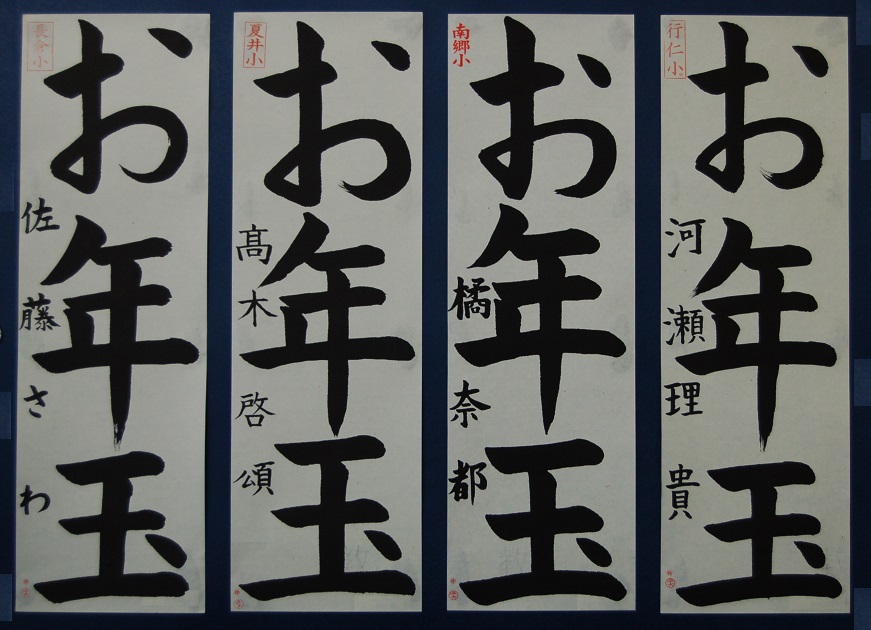 お年玉
行仁小
河瀬理貴
お年玉
南郷小
橘奈都
お年玉
夏井小
髙木啓頌
お年玉
長倉小
佐藤さわ